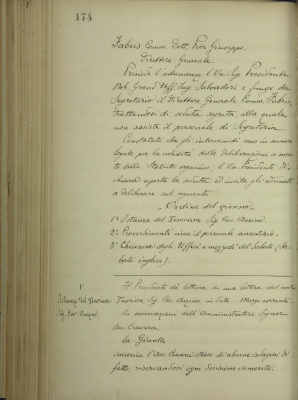 174
Fabris Comm. Dott. Pier Giuseppe
Direttore Generale.
Presiede l'adunanza l'On. Sig. Presidente
Nob. Grand'Uff. Ing. Salvadori e funge da
Segretario il Direttore Generale Comm. Fabris,
trattandosi di seduta segreta alla quale
non assiste il personale di Segreteria.
Constatato che gli intervenuti sono in numero
legale per la validità delle deliberazioni a nor-
ma dello Statuto organico, l'On. Presidente di-
chiara aperta la seduta ed invita gli adunati
a deliberare sul seguente
Ordine del giorno
1° Istanza del Tesoriere Sig. Cav.
2° Provvedimenti circa il personale avventizio.
3° Chiusura degli Uffici a mezzodì del Sabato (Sa-
bato inglese).
1°
Istanza del Tesoriere
Sig. Cav.
Il Presidente dà lettura di una lettera del nostro
Tesoriere, Sig. Cav. in data marzo corrente.
Su osservazioni dell'Amministratore Signor
Avv.
la Giunta
incarica l'Avv. stesso di alcune indagini di
fatto, riservandosi ogni decisione in merito.